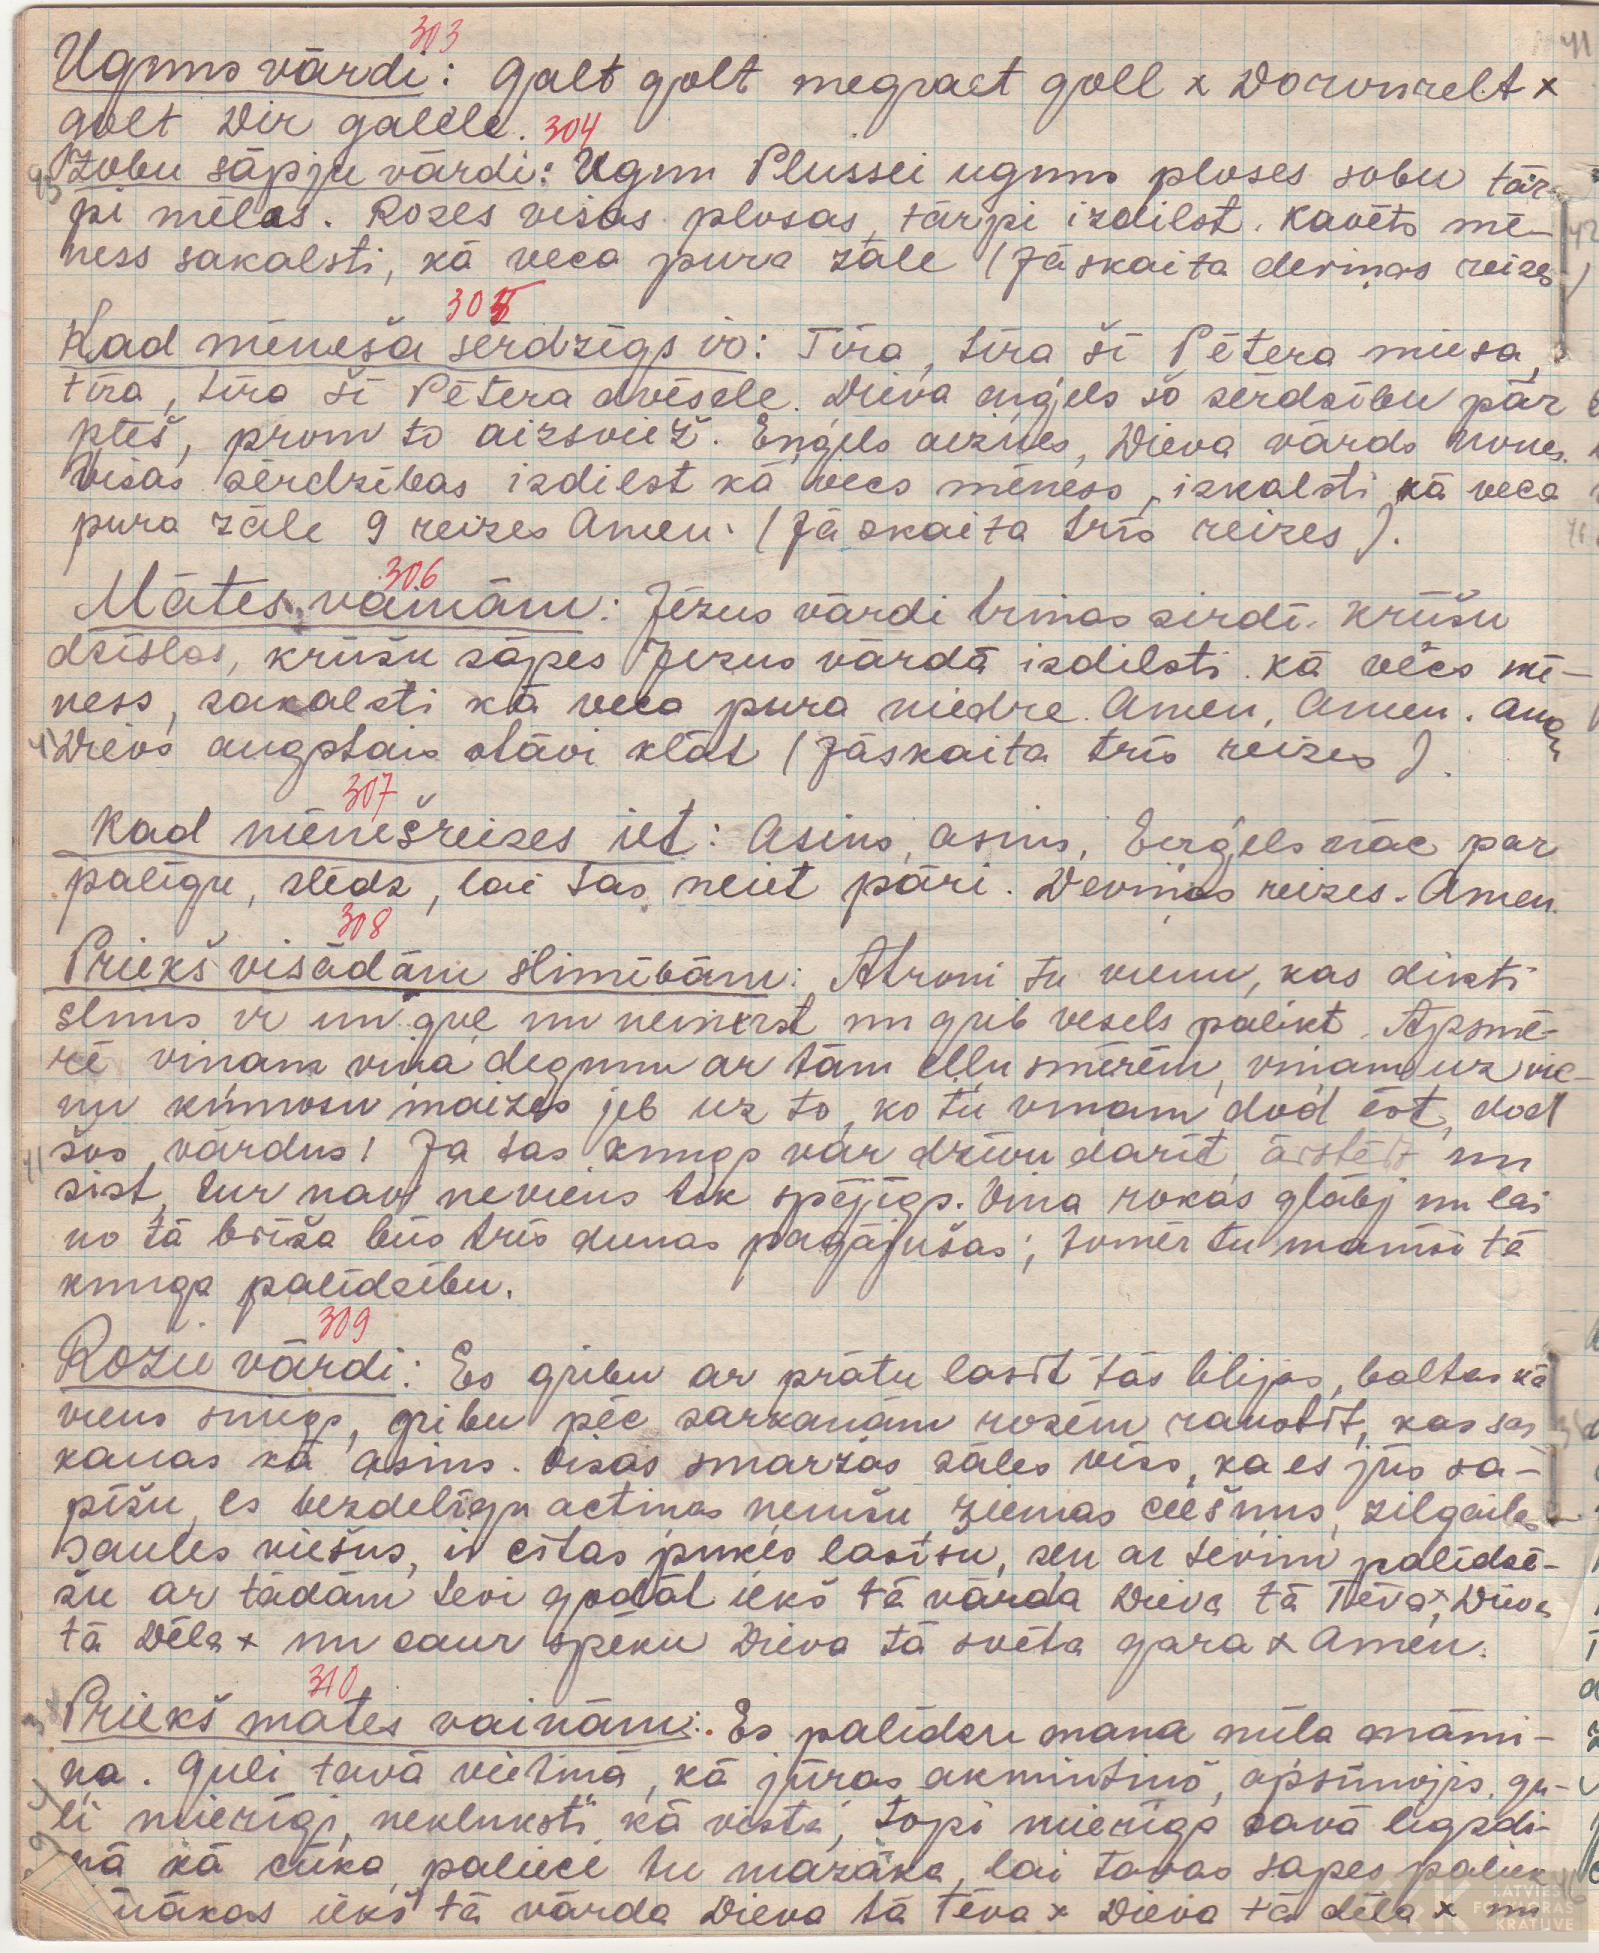 303
Uguns vārdi: Galt golt megraet goll x Dorvnrelt x
golt Dir galēle. 304
Zobu sāpju vārdi: Ugun Plussei uguns ploses sobu tār-
pi mēlas. Rozes visas plosas, tārpi izdilst. Kavēts mē-
ness sakalsti, kā veca pura zāle (Jāskaita deviņas reizes)
305
Kad mēneša sērdzīgs ir: Tīra, tīra šī Pētera miesa,
tīra, tīra šī Pētera dvēsele. Dieva eņģels šo sērdzību pār
plēš, prom to aizsviež. Eņģels aiznes, Dieva vārds nones.
Visas sērdzības izdilst kā vecs mēness, izkalsti kā veca
pura zāle 9 reizes Amen. (Jāskaita trīs reizes).
306
Mātes vainām: Jēzus vārdi trinas sirdī. Krūšu
dzīslas, krūšu sāpes Jezus vārdā izdilsti kā vēcs mē-
ness, sakalsti kā veca pura niedre. Amen, Amen. Amen
Dievs augstais stāvi klāt (Jāskaita trīs reizes).
307
Kad mēnešreizes iet: Asins, asins, Eņģels nāc par
palīgu, slēdz, lai tas neiet pāri. Deviņas reizes. Amen.
308
Priekš visādām slimībām: Atroni tu vienu, kas dikti
slims ir un guļ un nemirst un grib vesels palikt. Apsmē-
rē viņam viņa degunu ar tām eļļu smērēm, viņam uz vie-
nu kumosu maizes jeb uz to, ko tu viņam dod ēst, dod
šos vārdus! Ja tas kungs var dzīvu darīt, ārstēt un
sist, tur nav neviens tik spējīgs. Viņa rokas glābj un lai
no tā brīža būs trīs dienas pagājušas; tomēr tu mainīsi tā
kunga palīdzību.
309
Rožu vārdi: Es gribu ar prātu lasīt tās lilijas, baltas kā
viens sniegs, gribu pēc sarkanām rozēm raustīt, kas sar
kanas kā asins. Visas smaržas zāles viss, ka es jūs sa-
pīšu, es bezdelīgu actiņas ņemšu, ziemas ciešņus, zilgailes
saules viešus, ir citas puķes lasīšu, sen ar tevim palīdzē-
šu ar tādām tevi godāt iekš tā vārda Dieva tā Tēva x, Dieva
tā Dēla x un caur spēku Dieva tā svēta gara x Amen.
310
Priekš mātes vainām: Es palīdzu mana mīla māmi-
ņa. Guli tavā vietiņā, kā jūras akmintiņš, apsūnojis, gu-
li mierīgi, neklukstī kā vista, topi mierīga savā ligzdi-
ņā kā cūka, paliec tu mazāka, lai tavas sāpes paliek
nākas iekš tā vārda Dieva tā Tēva x Dieva tā dēla x un
LATVIEŠU
FOLKLORAS
KRĀTUVE